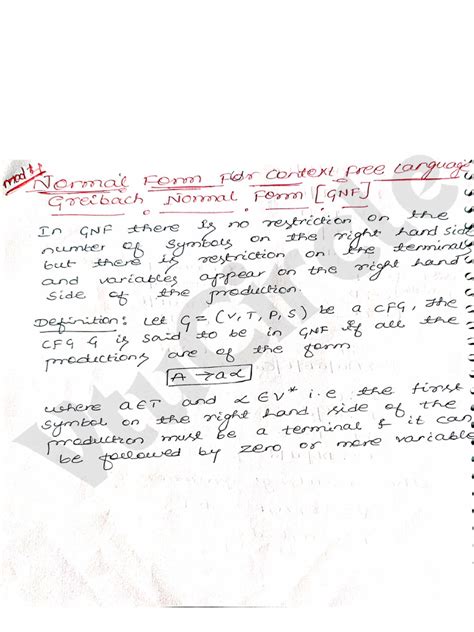 mod #1
Normal Form For Context Free Language
Greibach Normal Form [GNF]
In GNF there is no restriction on the
number of symbols on the right hand side
but there is restriction on the terminals
and variables appear on the right hand
side of the production.
Definition: Let G = (V, T, P, S) be a CFG, the
CFG G is said to be in GNF if all the
productions are of the form
A → aα
where a∈T and α∈V* i.e the first
symbol on the right hand side of the
production must be a terminal & it can
be followed by zero or more variable
VtuCircle